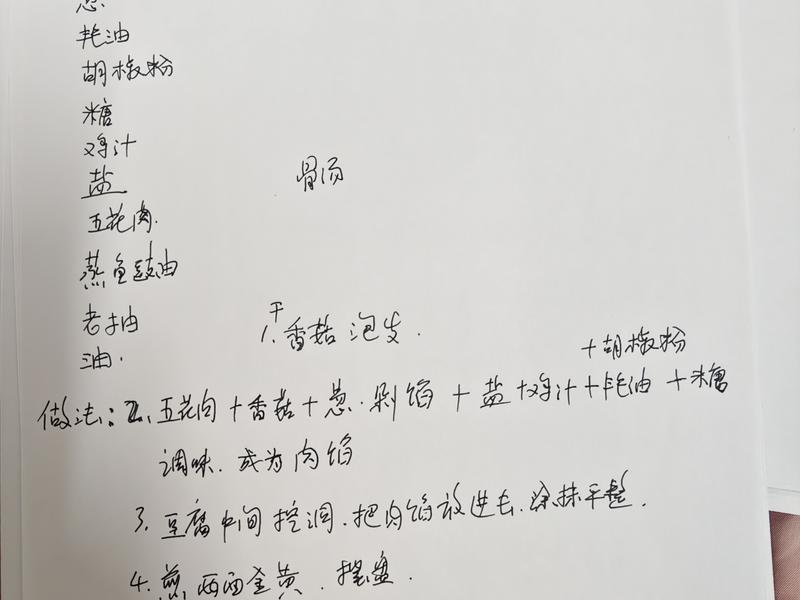 葱.
耗油
胡椒粉
糖
鸡汁
盐
骨汤
五花肉.
蒸鱼豉油
老抽
油.
干
1.香菇 泡发.
+胡椒粉
做法: 2、五花肉+香菇+葱.剁馅+盐+鸡汁+耗油+糖
调味.成为肉馅
3、豆腐中间挖洞.把肉馅放进去.涂抹平整.
4.煎两面金黄.摆盘.